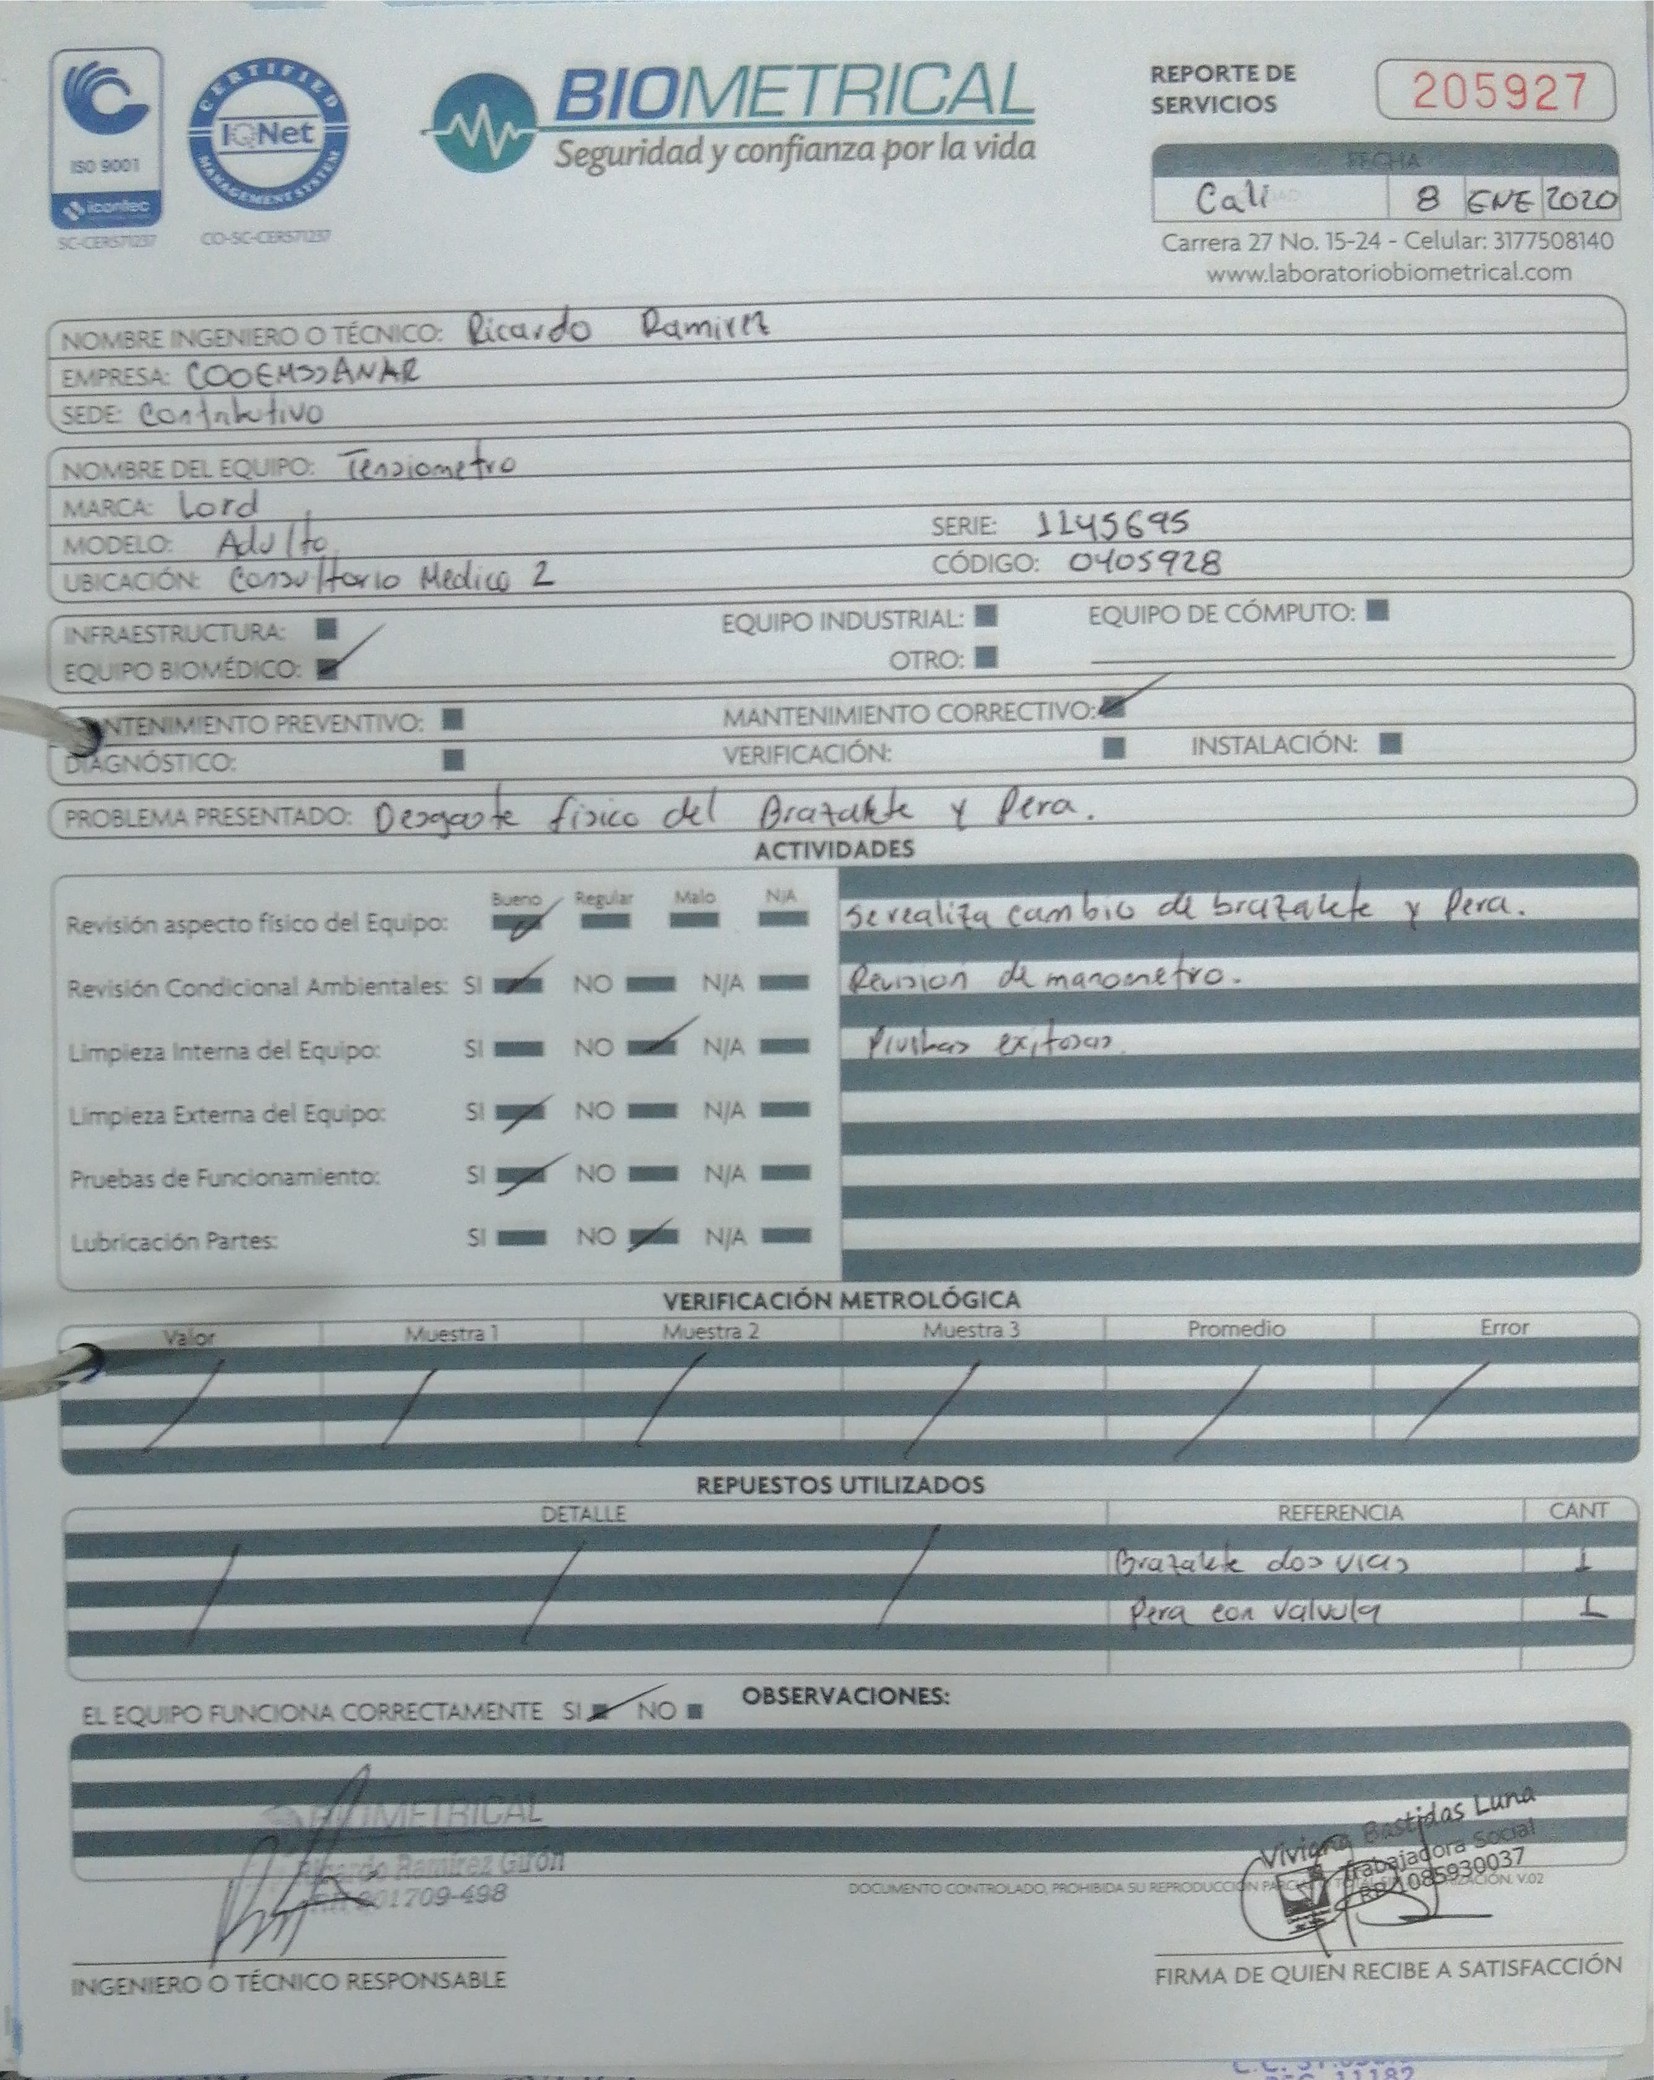 ISO 9001
icontec
SC-CER571237
CERTIFIED
IQNet
MANAGEMENT SYSTEM
CO-SC-CER571237
BIOMETRICAL
Seguridad y confianza por la vida
REPORTE DE
SERVICIOS
205927
FECHA
Cali 8 ENE 2020
Carrera 27 No. 15-24 - Celular: 3177508140
www.laboratoriobiometrical.com
NOMBRE INGENIERO O TÉCNICO: Ricardo Ramirez
EMPRESA: COOEMSSANAR
SEDE: Contributivo
NOMBRE DEL EQUIPO: Tensiometro
MARCA: Lord
SERIE: 1145695
MODELO: Adulto
CÓDIGO: 0405928
UBICACIÓN: Consultorio Medico 2
INFRAESTRUCTURA: EQUIPO INDUSTRIAL: EQUIPO DE CÓMPUTO:
EQUIPO BIOMÉDICO: OTRO:
NTENIMIENTO PREVENTIVO: MANTENIMIENTO CORRECTIVO:
DIAGNÓSTICO: VERIFICACIÓN: INSTALACIÓN:
PROBLEMA PRESENTADO: Desgaste fisico del Brazalete y Pera.
ACTIVIDADES
Bueno Regular Malo N/A
Revisión aspecto físico del Equipo:
Revisión Condicional Ambientales: SI NO N/A
Limpieza Interna del Equipo: SI NO N/A
Limpieza Externa del Equipo: SI NO N/A
Pruebas de Funcionamiento: SI NO N/A
Lubricación Partes: SI NO N/A
Se realiza cambio de brazalete y Pera.
Revision de manometro.
Pruebas exitosas.
VERIFICACIÓN METROLÓGICA
Valor Muestra 1 Muestra 2 Muestra 3 Promedio Error
REPUESTOS UTILIZADOS
DETALLE REFERENCIA CANT
Brazalete dos vias 1
Pera con valvula 1
EL EQUIPO FUNCIONA CORRECTAMENTE SI NO
OBSERVACIONES:
BIOMETRICAL
Ricardo Ramírez Girón
201709-498
INGENIERO O TÉCNICO RESPONSABLE
DOCUMENTO CONTROLADO, PROHIBIDA SU REPRODUCCIÓN V.02
Viviana Bastidas Luna
Trabajadora Social
RP 1085930037
FIRMA DE QUIEN RECIBE A SATISFACCIÓN
11182